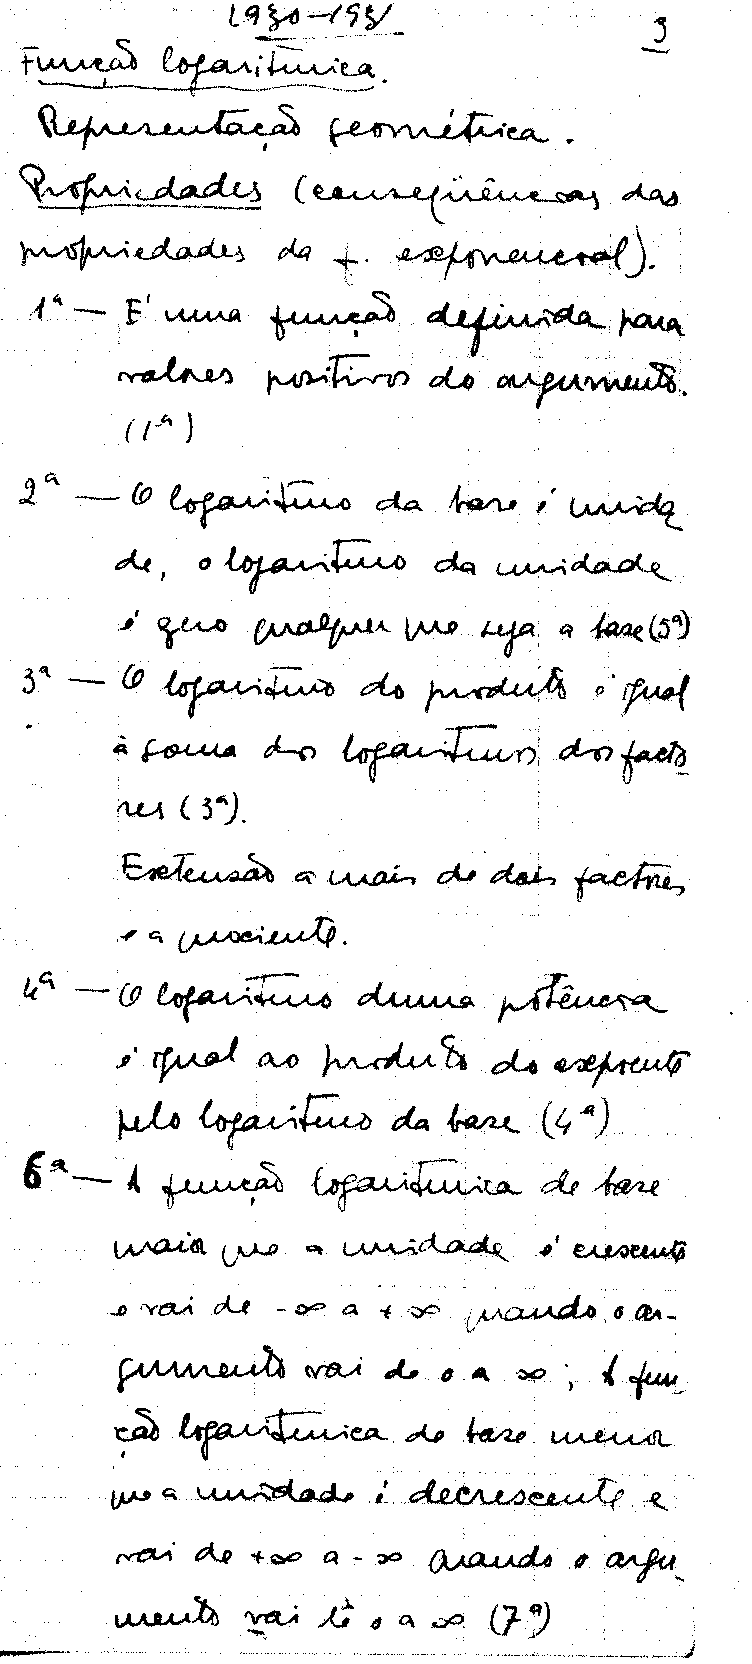 1930-1931
3
Função logarítmica.
Representação geométrica.
Propriedades (conseqüências das
propriedades da f. exponencial).
1ª — É uma função definida para
valores positivos do argumento.
(1ª)
2ª — O logaritmo da base é unida
de, o logaritmo da unidade
é zero qualquer que seja a base (5ª)
3ª — O logaritmo do produto é igual
à soma dos logaritmos dos facto
res (3ª).
Extensão a mais de dois factores
e a quociente.
4ª — O logaritmo duma potência
é igual ao produto do expoente
pelo logaritmo da base (4ª)
6ª — A função logarítmica de base
maior que a unidade é crescente
e vai de -∞ a +∞ quando o ar-
gumento vai de 0 a ∞; A fun
ção logarítmica de base menor
que a unidade é decrescente e
vai de +∞ a -∞ quando o argu
mento vai de 0 a ∞ (7ª)